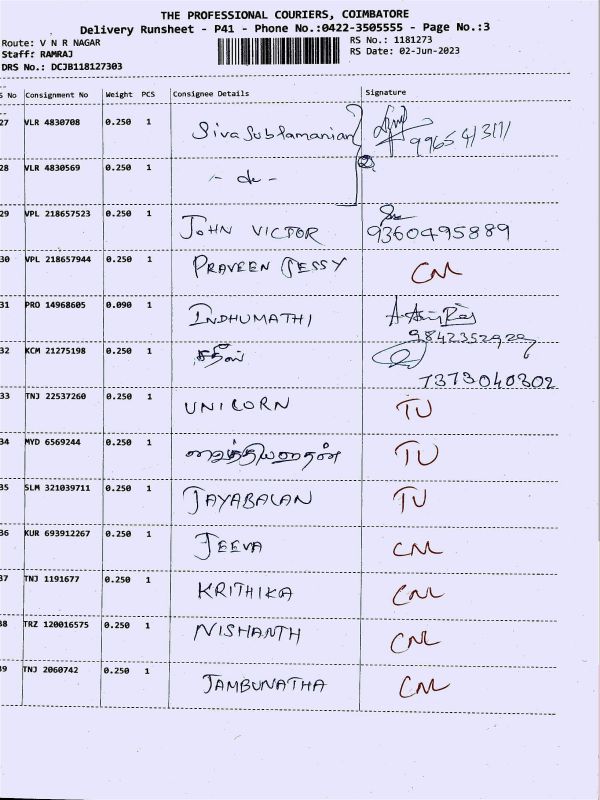 THE PROFESSIONAL COURIERS, COIMBATORE
Delivery Runsheet - P41 - Phone No.:0422-3505555 - Page No.:3
Route: V N R NAGAR RS No.: 1181273
Staff: RAMRAJ RS Date: 02-Jun-2023
DRS No.: DCJB118127303
S No Consignment No Weight PCS Consignee Details Signature
27 VLR 4830708 0.250 1 Siva Subramanian
28 VLR 4830569 0.250 1 - do - ②
29 VPL 218657523 0.250 1 JOHN VICTOR 9360495889
30 VPL 218657944 0.250 1 PRAVEEN JESSY CNL
31 PRO 14968605 0.090 1 INDHUMATHI 9842352929
32 KCM 21275198 0.250 1 சதீஸ் 7373040302
33 TNJ 22537260 0.250 1 UNICORN TU
34 MYD 6569244 0.250 1 TU
35 SLM 321039711 0.250 1 JAYABALAN TU
36 KUR 693912267 0.250 1 JEEVA CNL
37 TNJ 1191677 0.250 1 KRITHIKA CNL
38 TRZ 120016575 0.250 1 NISHANTH CNL
39 TNJ 2060742 0.250 1 JAMBUNATHA CNL